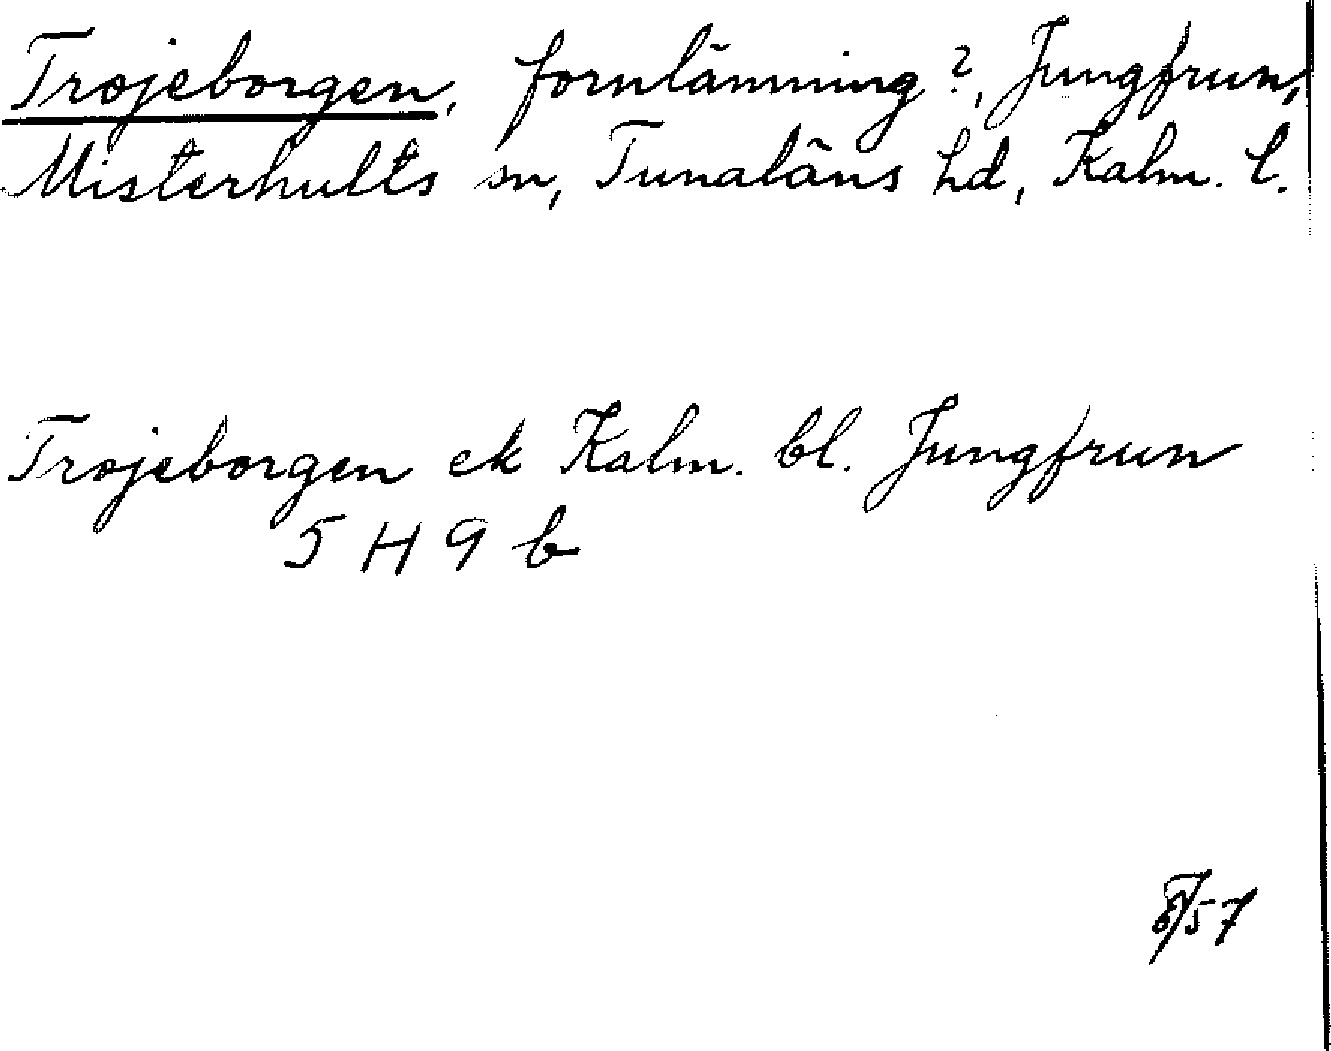 Trojeborgen, fornlämning?, Jungfrun,
Misterhults sn, Tunaläns hd, Kalm. l.
Trojeborgen ek Kalm. bl. Jungfrun
5 H 9 b